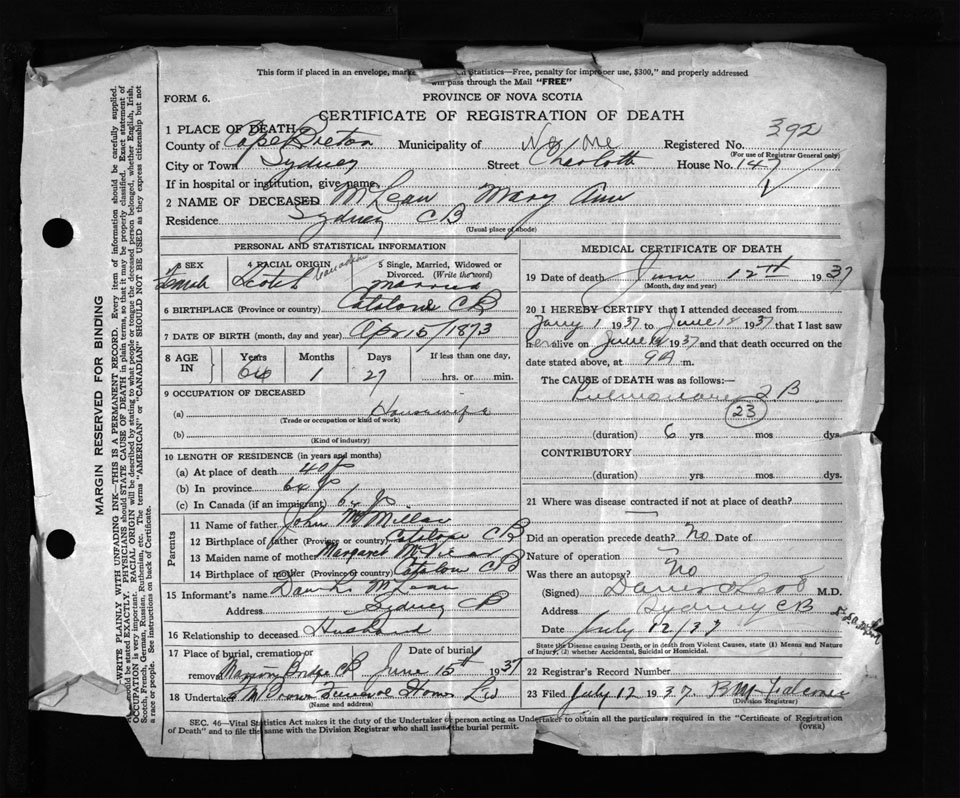 This form if placed in an envelope, marke Statistics—Free, penalty for improper use, $300," and properly addressed
will pass through the Mail "FREE"
FORM 6.
PROVINCE OF NOVA SCOTIA
CERTIFICATE OF REGISTRATION OF DEATH
392
1 PLACE OF DEATH
County of Cape Breton Municipality of Registered No.
(For use of Registrar General only)
City or Town Sydney Street Charlotte House No. 147
If in hospital or institution, give name
2 NAME OF DECEASED McLean Mary Ann
Residence Sydney CB
(Usual place of abode)
PERSONAL AND STATISTICAL INFORMATION
3 SEX 4 RACIAL ORIGIN 5 Single, Married, Widowed or
Divorced. (Write the word)
Female Scotch Canadian Married
6 BIRTHPLACE (Province or country) Catalone CB
7 DATE OF BIRTH (month, day and year) Apr 15/1873
8 AGE IN Years Months Days If less than one day,
64 1 27 hrs. or min.
9 OCCUPATION OF DECEASED
(a) Housewife
(Trade or occupation or kind of work)
(b)
(Kind of industry)
10 LENGTH OF RESIDENCE (in years and months)
(a) At place of death 40
(b) In province 64
(c) In Canada (if an immigrant) 64
Parents
11 Name of father John
12 Birthplace of father (Province or country) Catalone CB
13 Maiden name of mother Margaret
14 Birthplace of mother (Province or country) Catalone CB
15 Informant's name McLean
Address Sydney CB
16 Relationship to deceased Husband
17 Place of burial, cremation or Date of burial
removal Marion Bridge CB June 15th 1937
18 Undertaker Funeral Home Ltd
(Name and address)
MEDICAL CERTIFICATE OF DEATH
19 Date of death June 12th 1937
(Month, day and year)
20 I HEREBY CERTIFY that I attended deceased from
1 1937 to June 12 1937 that I last saw
her alive on June 1937 and that death occurred on the
date stated above, at 9 A m.
The CAUSE of DEATH was as follows:—
Pulmonary TB
23
(duration) 6 yrs. mos. dys.
CONTRIBUTORY
(duration) yrs. mos. dys.
21 Where was disease contracted if not at place of death?
Did an operation precede death? No Date of
Nature of operation
Was there an autopsy? No
(Signed) M.D.
Address Sydney CB
Date July 12/37
State the Disease causing Death, or in death from Violent Causes, state (1) Means and Nature
of Injury, (2) whether Accidental, Suicidal or Homicidal.
22 Registrar's Record Number
23 Filed July 12 1937.
(Division Registrar)
SEC. 46—Vital Statistics Act makes it the duty of the Undertaker or person acting as Undertaker to obtain all the particulars required in the "Certificate of Registration
of Death" and to file the same with the Division Registrar who shall issue the burial permit. (OVER)
MARGIN RESERVED FOR BINDING
WRITE PLAINLY WITH UNFADING INK—THIS IS A PERMANENT RECORD. Every item of information should be carefully supplied.
should be stated EXACTLY. PHYSICIANS should STATE CAUSE OF DEATH in plain terms, so that it may be properly classified. Exact statement of
OCCUPATION is very important. RACIAL ORIGIN will be described by stating to what people or tongue the deceased person belonged, whether English, Irish,
Scotch, French, German, Russian, Ruthenian, etc. The terms "AMERICAN" or "CANADIAN" SHOULD NOT BE USED as they express citizenship but not
a race or people. See instructions on back of Certificate.